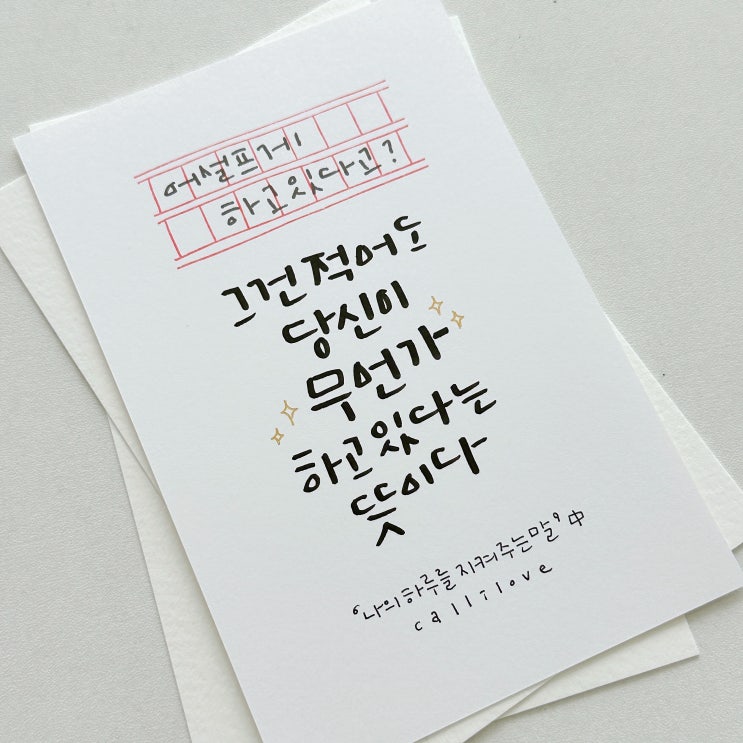 어설프게
하고있다고?
그건 적어도
당신이
무언가
하고있다는
뜻이다
'나의 하루를 지켜주는 말' 中
callilove